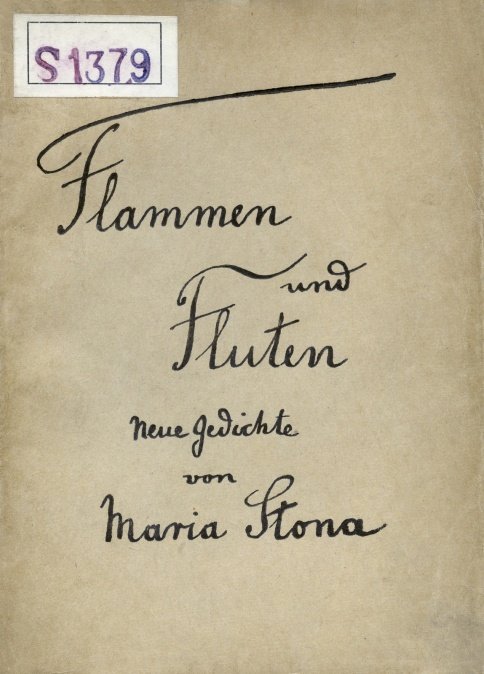 S1379
Flammen
und
Fluten
Neue Gedichte
von
Maria Stona